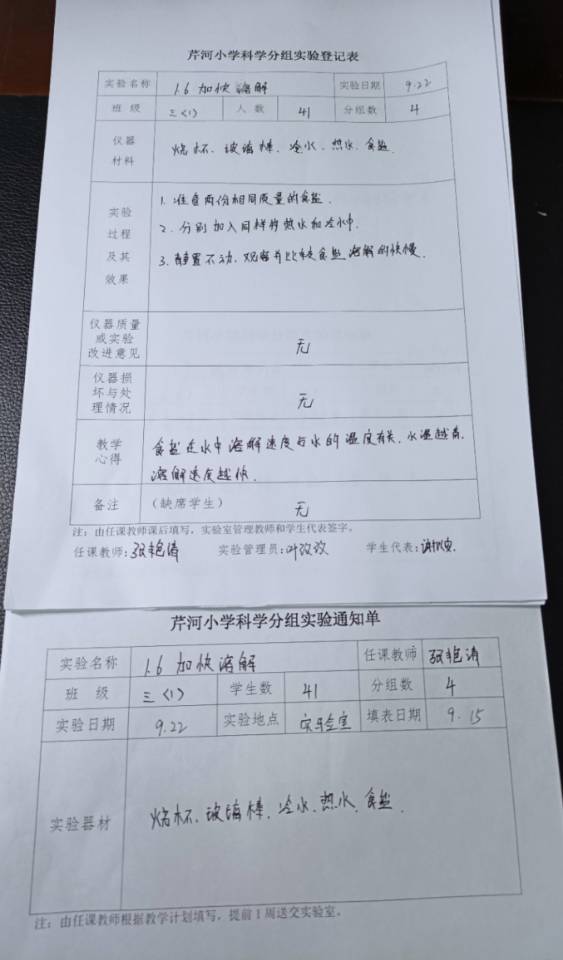 芹河小学科学分组实验登记表
实验名称 1.6 加快溶解 实验日期 9.22
班 级 三〈1〉 人 数 41 分组数 4
仪器
材料
烧杯、玻璃棒、冷水、热水、食盐.
实验
过程
及其
效果
1. 准备两份相同质量的食盐.
2. 分别加入同样的热水和冷水中.
3. 静置不动,观察并比较食盐溶解的快慢.
仪器质量
或实验
改进意见
无
仪器损
坏与处
理情况
无
教学
心得
食盐在水中溶解速度与水的温度有关,水温越高,
溶解速度越快.
备注 (缺席学生) 无
注:由任课教师课后填写,实验室管理教师和学生代表签字。
任课教师:张艳涛 实验管理员:叶改改 学生代表:
芹河小学科学分组实验通知单
实验名称 1.6 加快溶解 任课教师 张艳涛
班 级 三〈1〉 学生数 41 分组数 4
实验日期 9.22 实验地点 实验室 填表日期 9.15
实验器材 烧杯、玻璃棒、冷水、热水、食盐.
注:由任课教师根据教学计划填写,提前1周送交实验室。